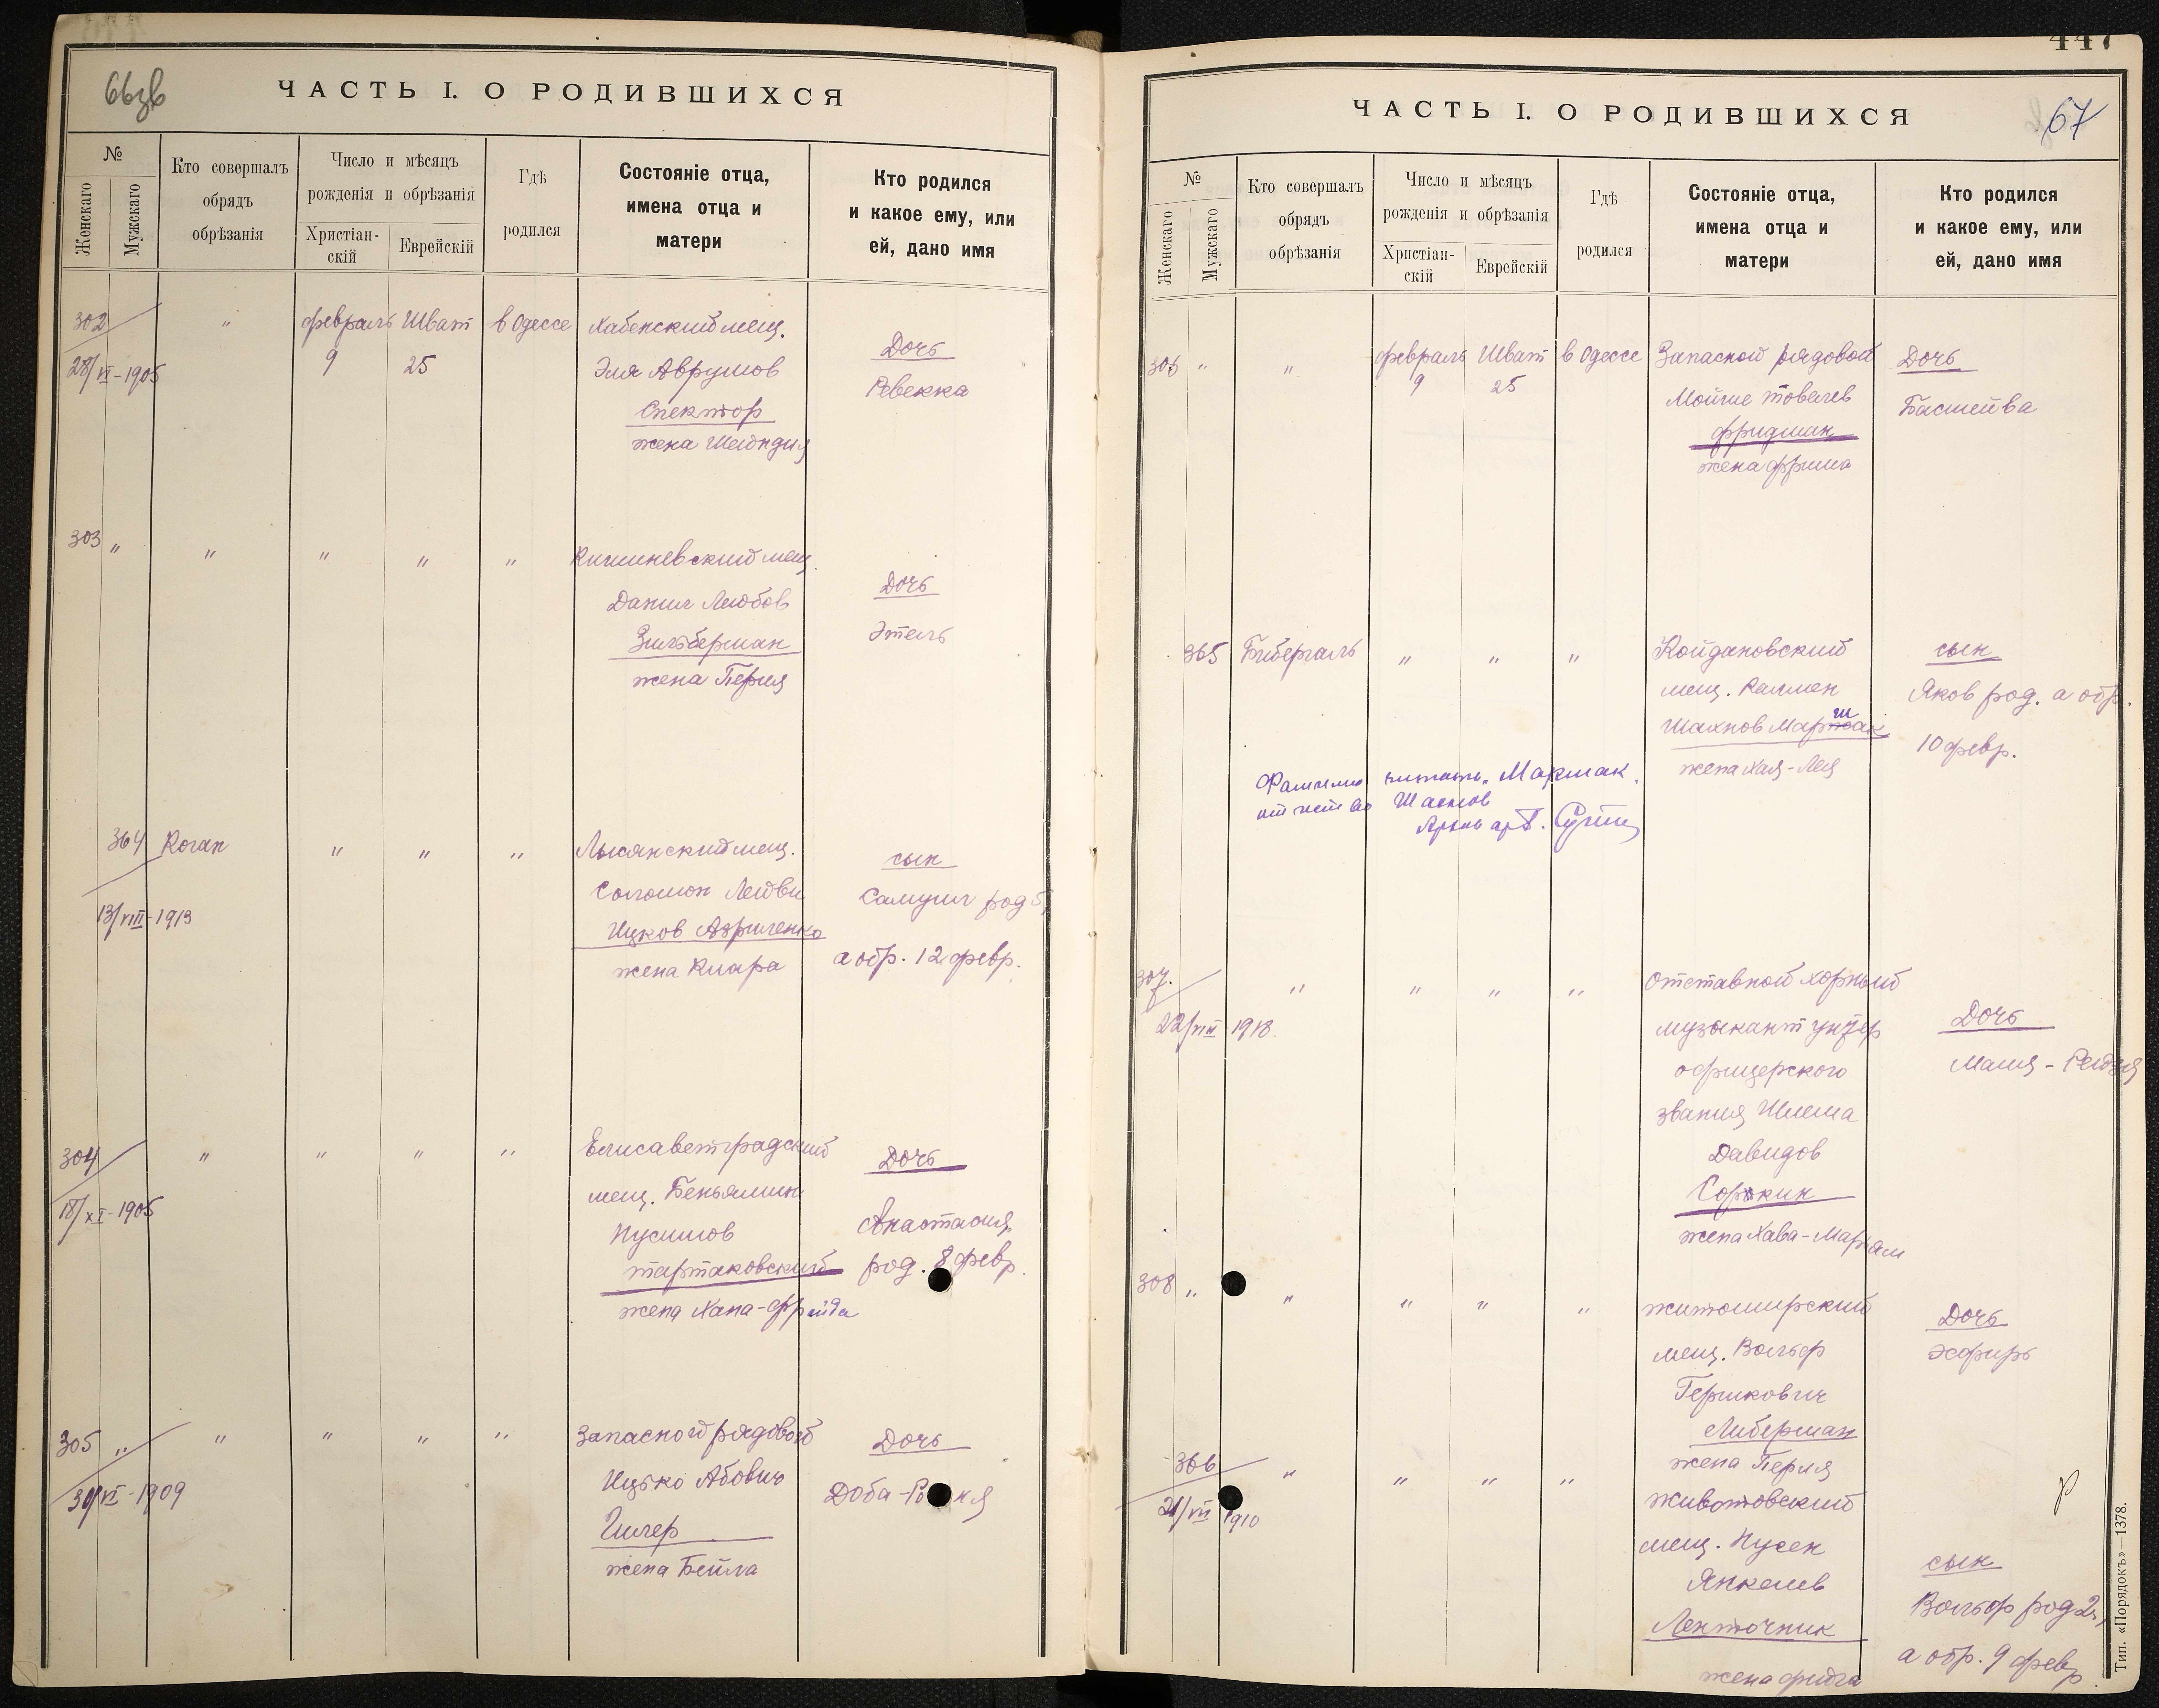 66зв
ЧАСТЬ I. О РОДИВШИХСЯ
№
Женскаго
Мужскаго
Кто совершалъ
обрядъ
обрѣзанія
Число и мѣсяцъ
рожденія и обрѣзанія
Христіан-
скій
Еврейскій
Гдѣ
родился
Состояніе отца,
имена отца и
матери
Кто родился
и какое ему, или
ей, дано имя
302 " февраль Шват в Одессе Хабенский мещ.
28/VI-1905 9 25 Эля Аврумов Дочь
Спектор Ревекка
жена Шейндля
303 " " " " " Кишиневский мещ.
Данил Лейбов Дочь
Зильберман Этель
жена Перля
364 Коган " " " Лысянский мещ.
Соломон Лейви сын
13/VIII-1913 Ицков Самуил род 5,
жена Клара а обр. 12 февр.
304 " " " " Елисаветградский Дочь
мещ. Беньямин
18/XI-1905 Нусимов Анастасия
тартаковский род. 8 февр.
жена Хана-Фрейда
305 " " " " " Запасной рядовой Дочь
30/VI-1909 Ицько Абович
Гилер
жена Бейла
447
67
ЧАСТЬ I. О РОДИВШИХСЯ
№
Женскаго
Мужскаго
Кто совершалъ
обрядъ
обрѣзанія
Число и мѣсяцъ
рожденія и обрѣзанія
Христіан-
скій
Еврейскій
Гдѣ
родился
Состояніе отца,
имена отца и
матери
Кто родился
и какое ему, или
ей, дано имя
306 " " февраль Шват в Одессе Запасной рядовой Дочь
9 25 Мойше товиев Басшейва
фридман
жена фрима
365 Бибергаль " " " Койдановский сын
мещ. Калмен Яков род. а обр.
Шахнов Маршак 10 февр.
жена Хая-Лея
Фамилию читать "Маршак.
отчество Шахнов
307. " " " " Отставной хорный
22/VIII-1918. музыкант унтер Дочь
офицерского
звания Шлема
Давидов
Соркин
жена Хава-Марьям
308 " " " " " житомирский Дочь
мещ. Вольф Эсфирь
Гершкович
Либерман
жена Перля
366 " " " " животовский
21/VII 1910 мещ. Нусен
Янкелев сын
Ленточник Вольф род 2,
а обр. 9 февр.
Тип. «Порядокъ»—1378.